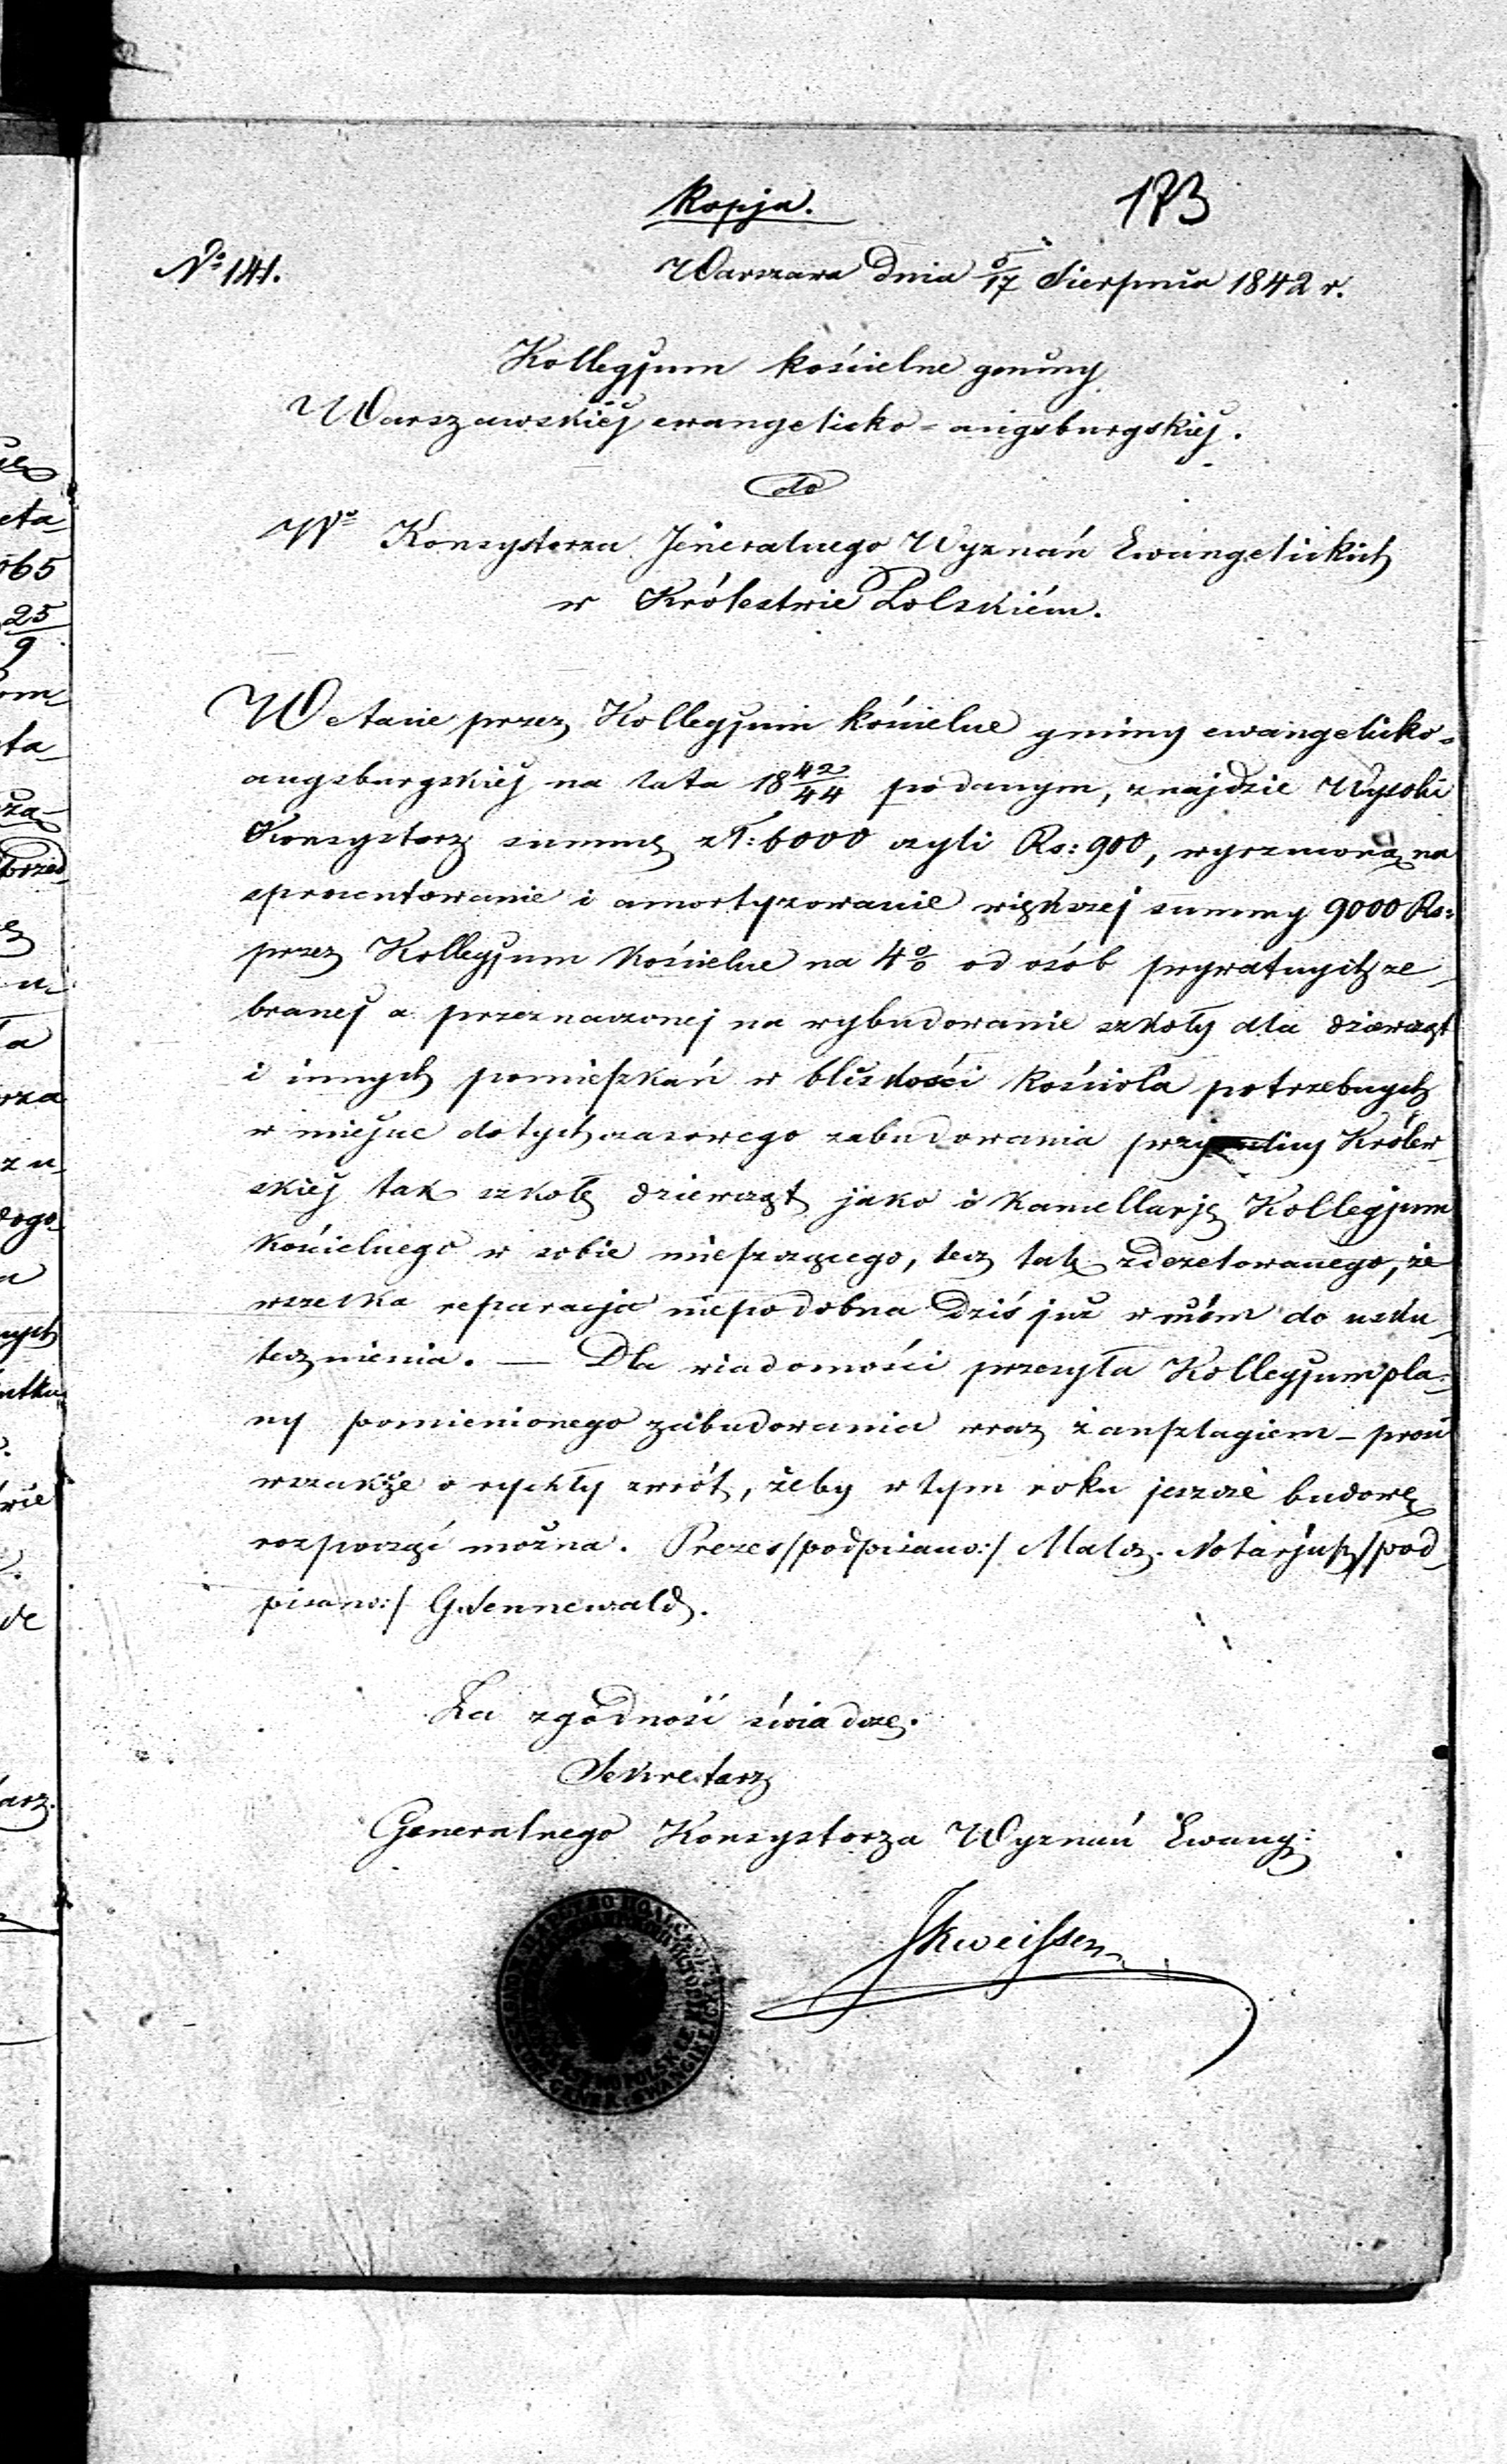 Kopja.
173
No 141.
Warszawa dnia 5/17 Sierpnia 1842 r.
Kollegjum kościelne gminy
Warszawskiéj ewangelicko-augsburgskiéj.
do
Wo Konsystorza Jeneralnego Wyznań Ewangelickich
w Królestwie Polskiém.
W etacie przez Kollegjum kościelne gminy ewangelicko-
augsburgskiéj na lata 18 42/44 podanym, znajdzie Wysoki
Konsystorz summę zł: 6000 czyli Rs: 900, wyrzuconą na
sprocentowanie i amortyzowanie większej summy 9000 Rs:
przez Kollegjum Kościelne na 4% od osób prywatnych ze-
branej a przeznaczonej na wybudowanie szkoły dla dziewcząt
i innych pomieszkań w bliskości Kościoła potrzebnych
w miejsce dotychczasowego zabudowania przy ulicy Królew-
skiéj tak szkołę dziewcząt jako i kancellarję Kollegjum
Kościelnego w sobie mieszczącego, lecz tak zdezelowanego, że
wszelka reparacja niepodobna dziś już w niém do usku-
tecznienia. — Dla wiadomości przesyła Kollegjum pla-
ny pomienionego zabudowania wraz z anszlagiem — prosi
wszakże o rychły zwrót, żeby w tym roku jeszcze budowę
rozpocząć można. Prezes /podpisano:/ Malcz. Notarjusz /pod-
pisano:/ G. Sennewald.
Za zgodność świadczę.
Sekretarz
Generalnego Konsystorza Wyznań Ewang: